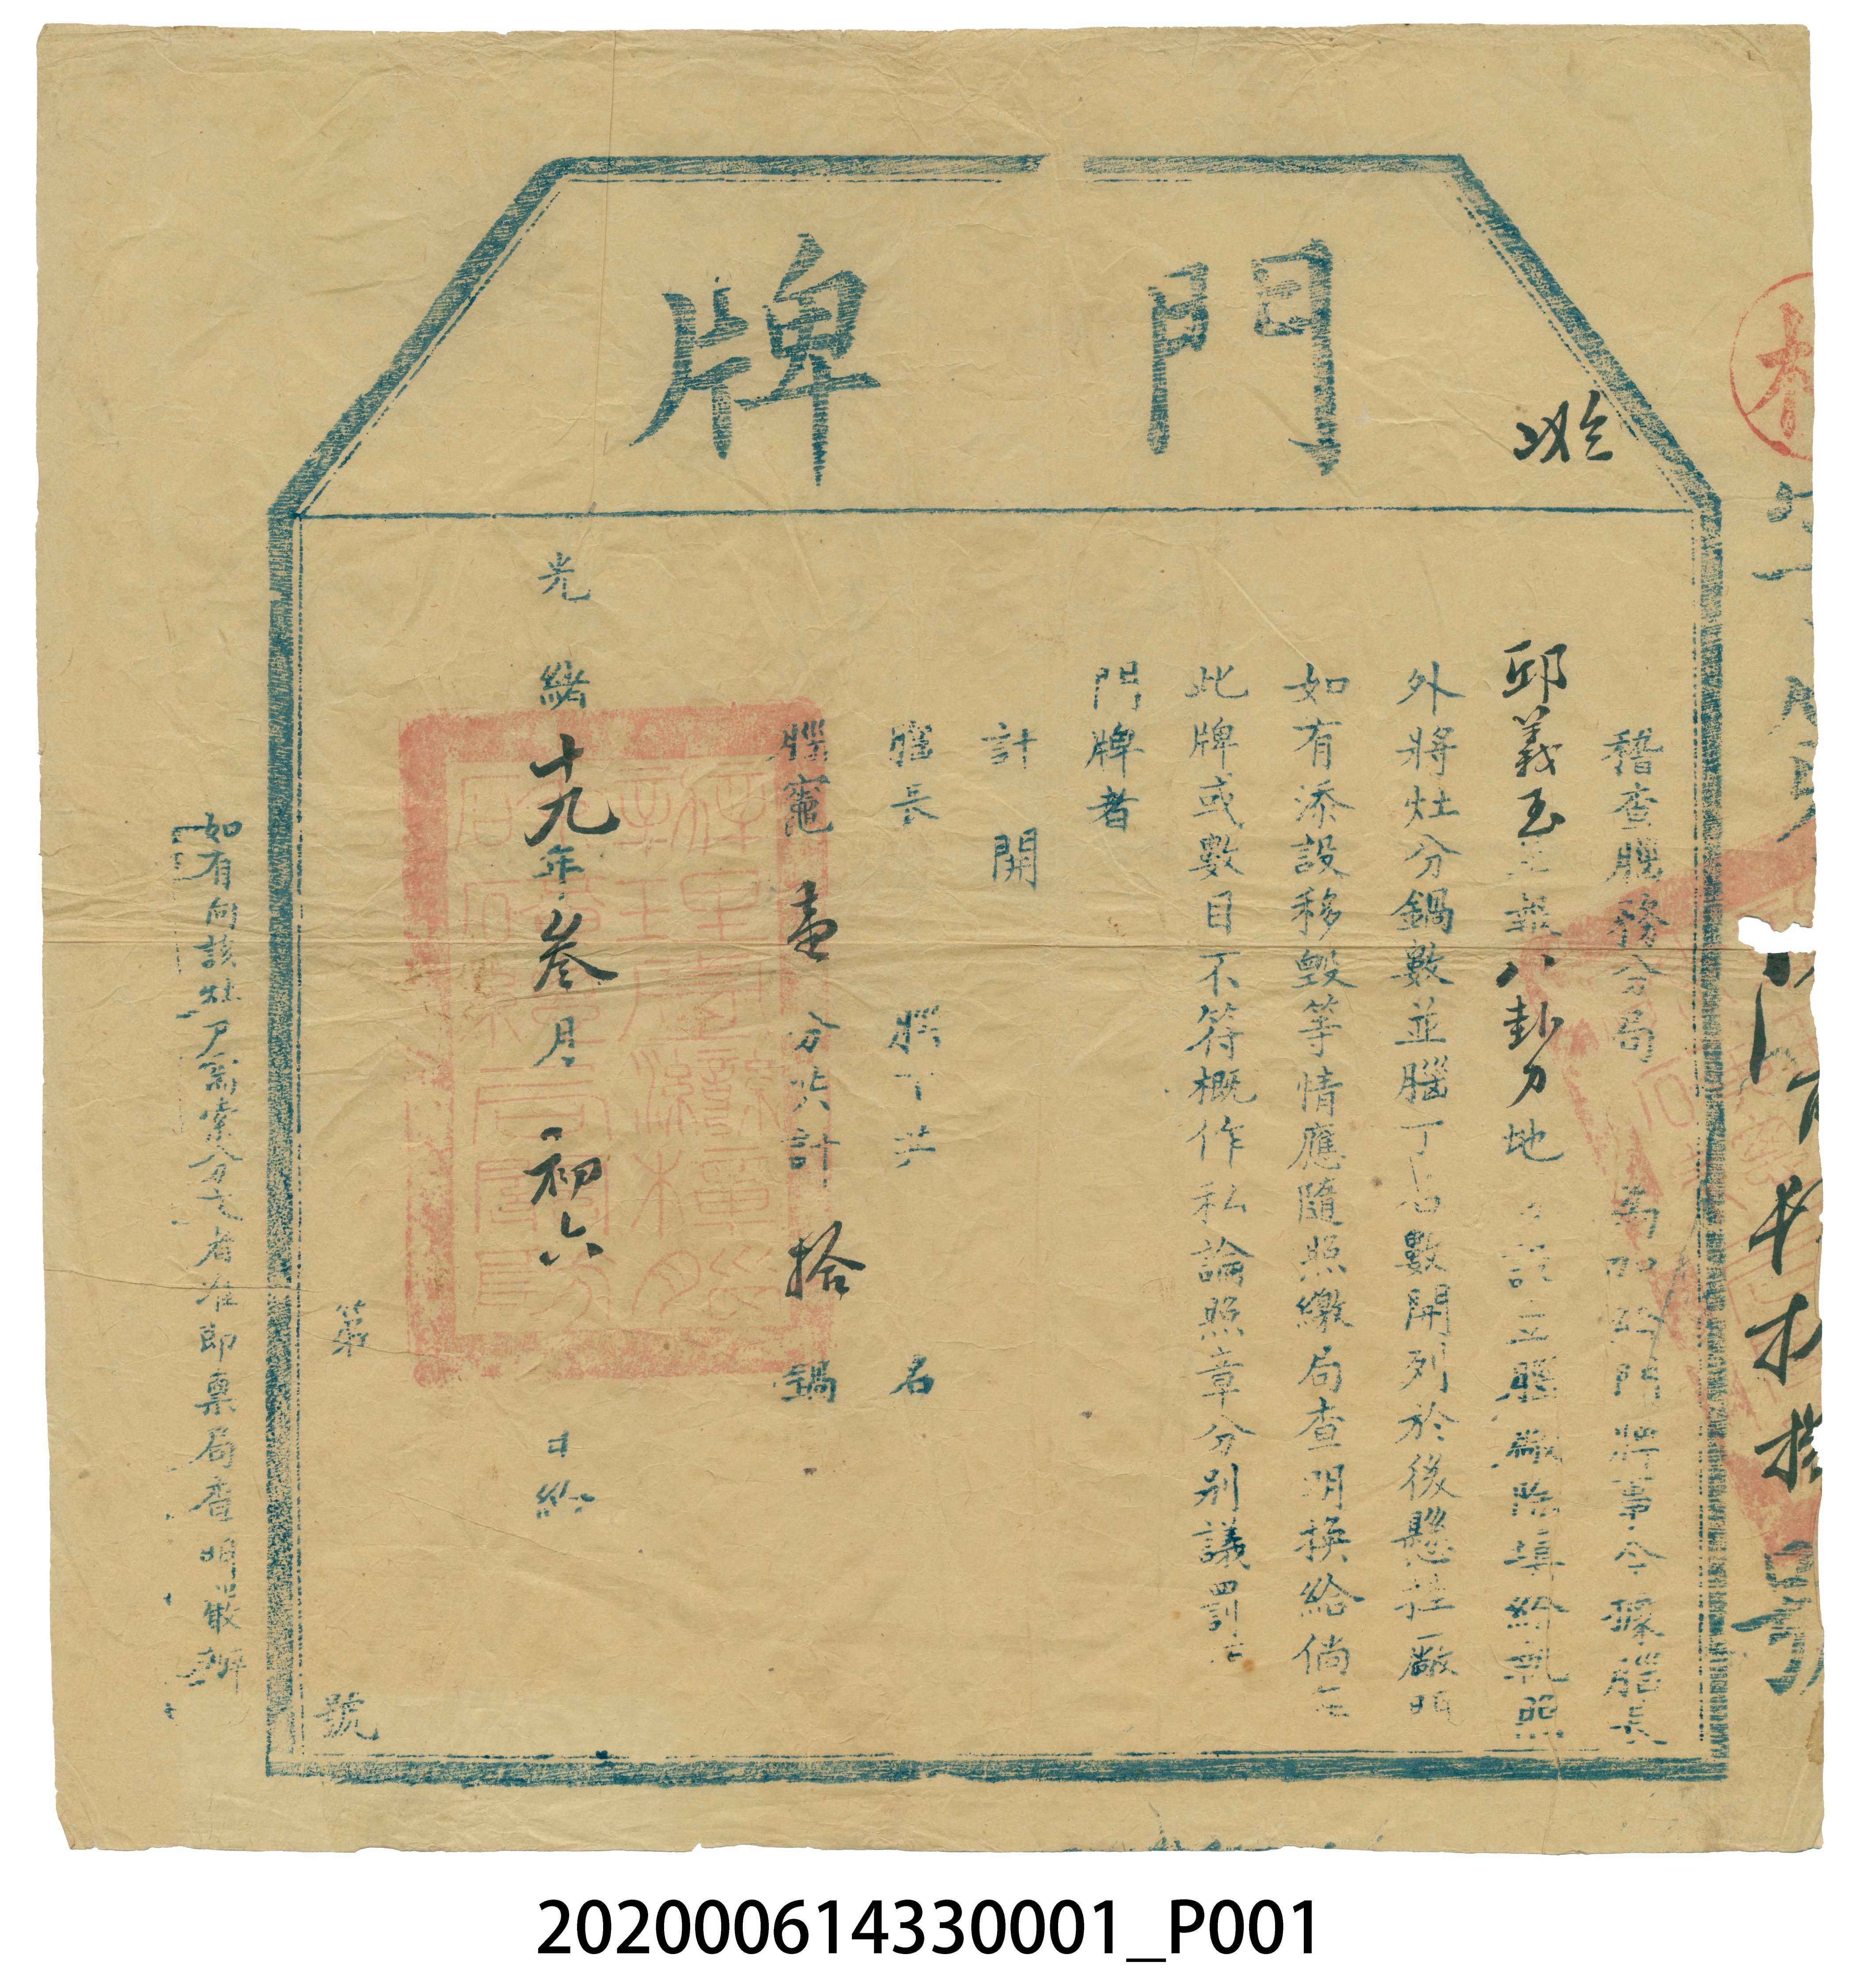 門牌
稽查腦務分局 為 門牌事今據腦長
邱義玉 報八卦力地 設立腦廠除填給執照
外將灶分鍋數並腦丁名數開列於後懸挂廠門
如有添設移毀等情應隨照繳局查明換給倘無
此牌或數目不符概作私論照章分別議罰
門牌者
計開
腦長 腦丁共 名
腦竈壹分共計拾鍋
光緒十九年叁月初六日給
第 號
如有向該灶戶需索分文者准即稟局查明嚴辦
202000614330001_P001